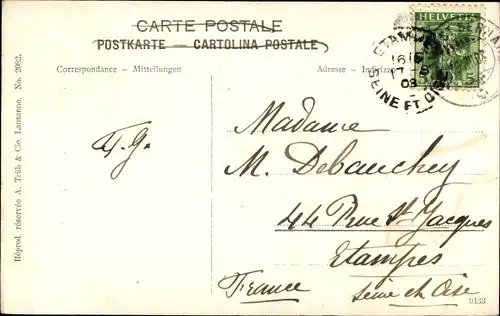 CARTE POSTALE
POSTKARTE — CARTOLINA POSTALE
Correspondance — Mittellungen
Adresse — Indirizzo
HELVETIA
5 5
ETAMPES
16
17 8
09
SEINE ET OISE
Réprod. réservée A. Trüb & Cie. Lausanne. No. 2082.
Madame
M. Debauchey
44 Rue St Jacques
Etampes
France
Seine et Oise
9133